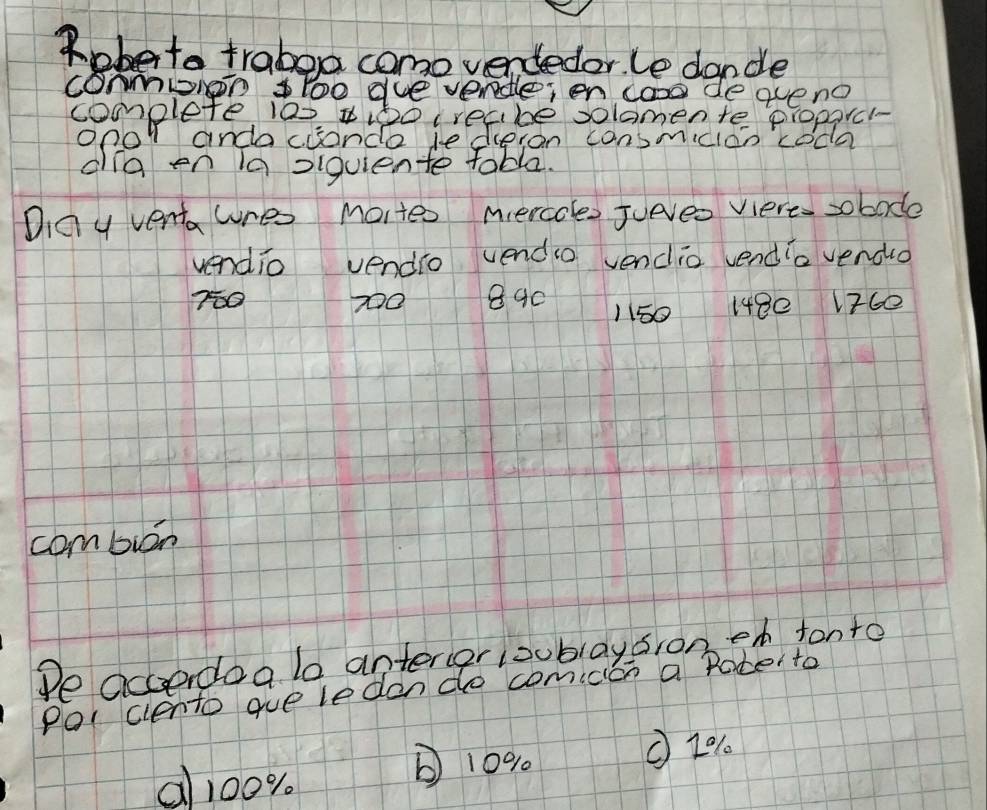 Roberto trabaja como vendedor. Le dan de
conmición $100 que vende; en caso de queno
complete los $100, recibe solamente proporci-
onal anda cuanda le dieran consmición cada
día en la siguiente tabla.
Dia y venta Lunes Martes Miercoles Jueves Vieres sobado
vendio vendio vendio vendio vendio vendio
750 700 890 1150 1480 1760
combión
De accerdo a lo anterior, subrayaron en tanto
Por ciento que le dan de comición a Roberto
a) 100% b) 10% c) 1%